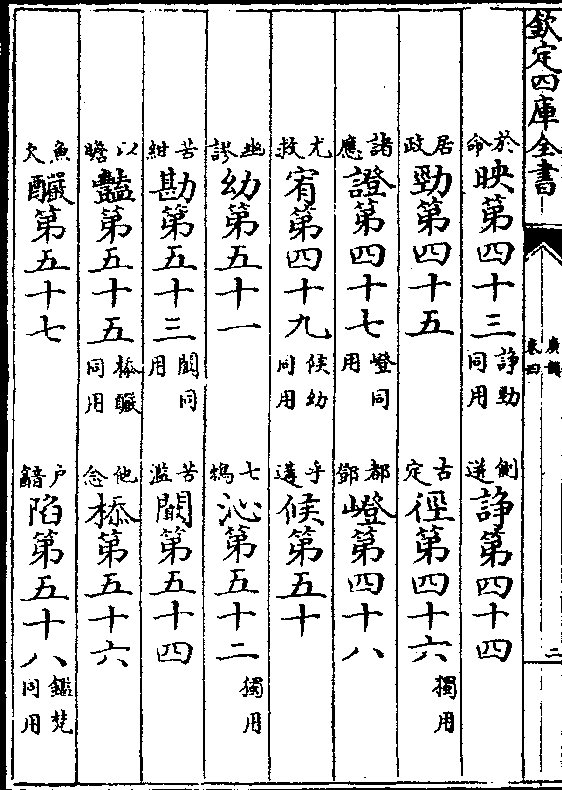 欽定四庫全書
廣韻
卷四
二
於命映第四十三諍勁同用　側迸諍第四十四
居政勁第四十五　古定徑第四十六獨用
諸應證第四十七嶝同用　都鄧嶝第四十八
尤救宥第四十九候幼同用　乎遘候第五十
幽謬幼第五十一　七鴆沁第五十二獨用
苦紺勘第五十三闞同用　苦濫闞第五十四
以贍豔第五十五㮇釅同用　他念㮇第五十六
魚欠釅第五十七　戶韽陷第五十八鑑梵同用